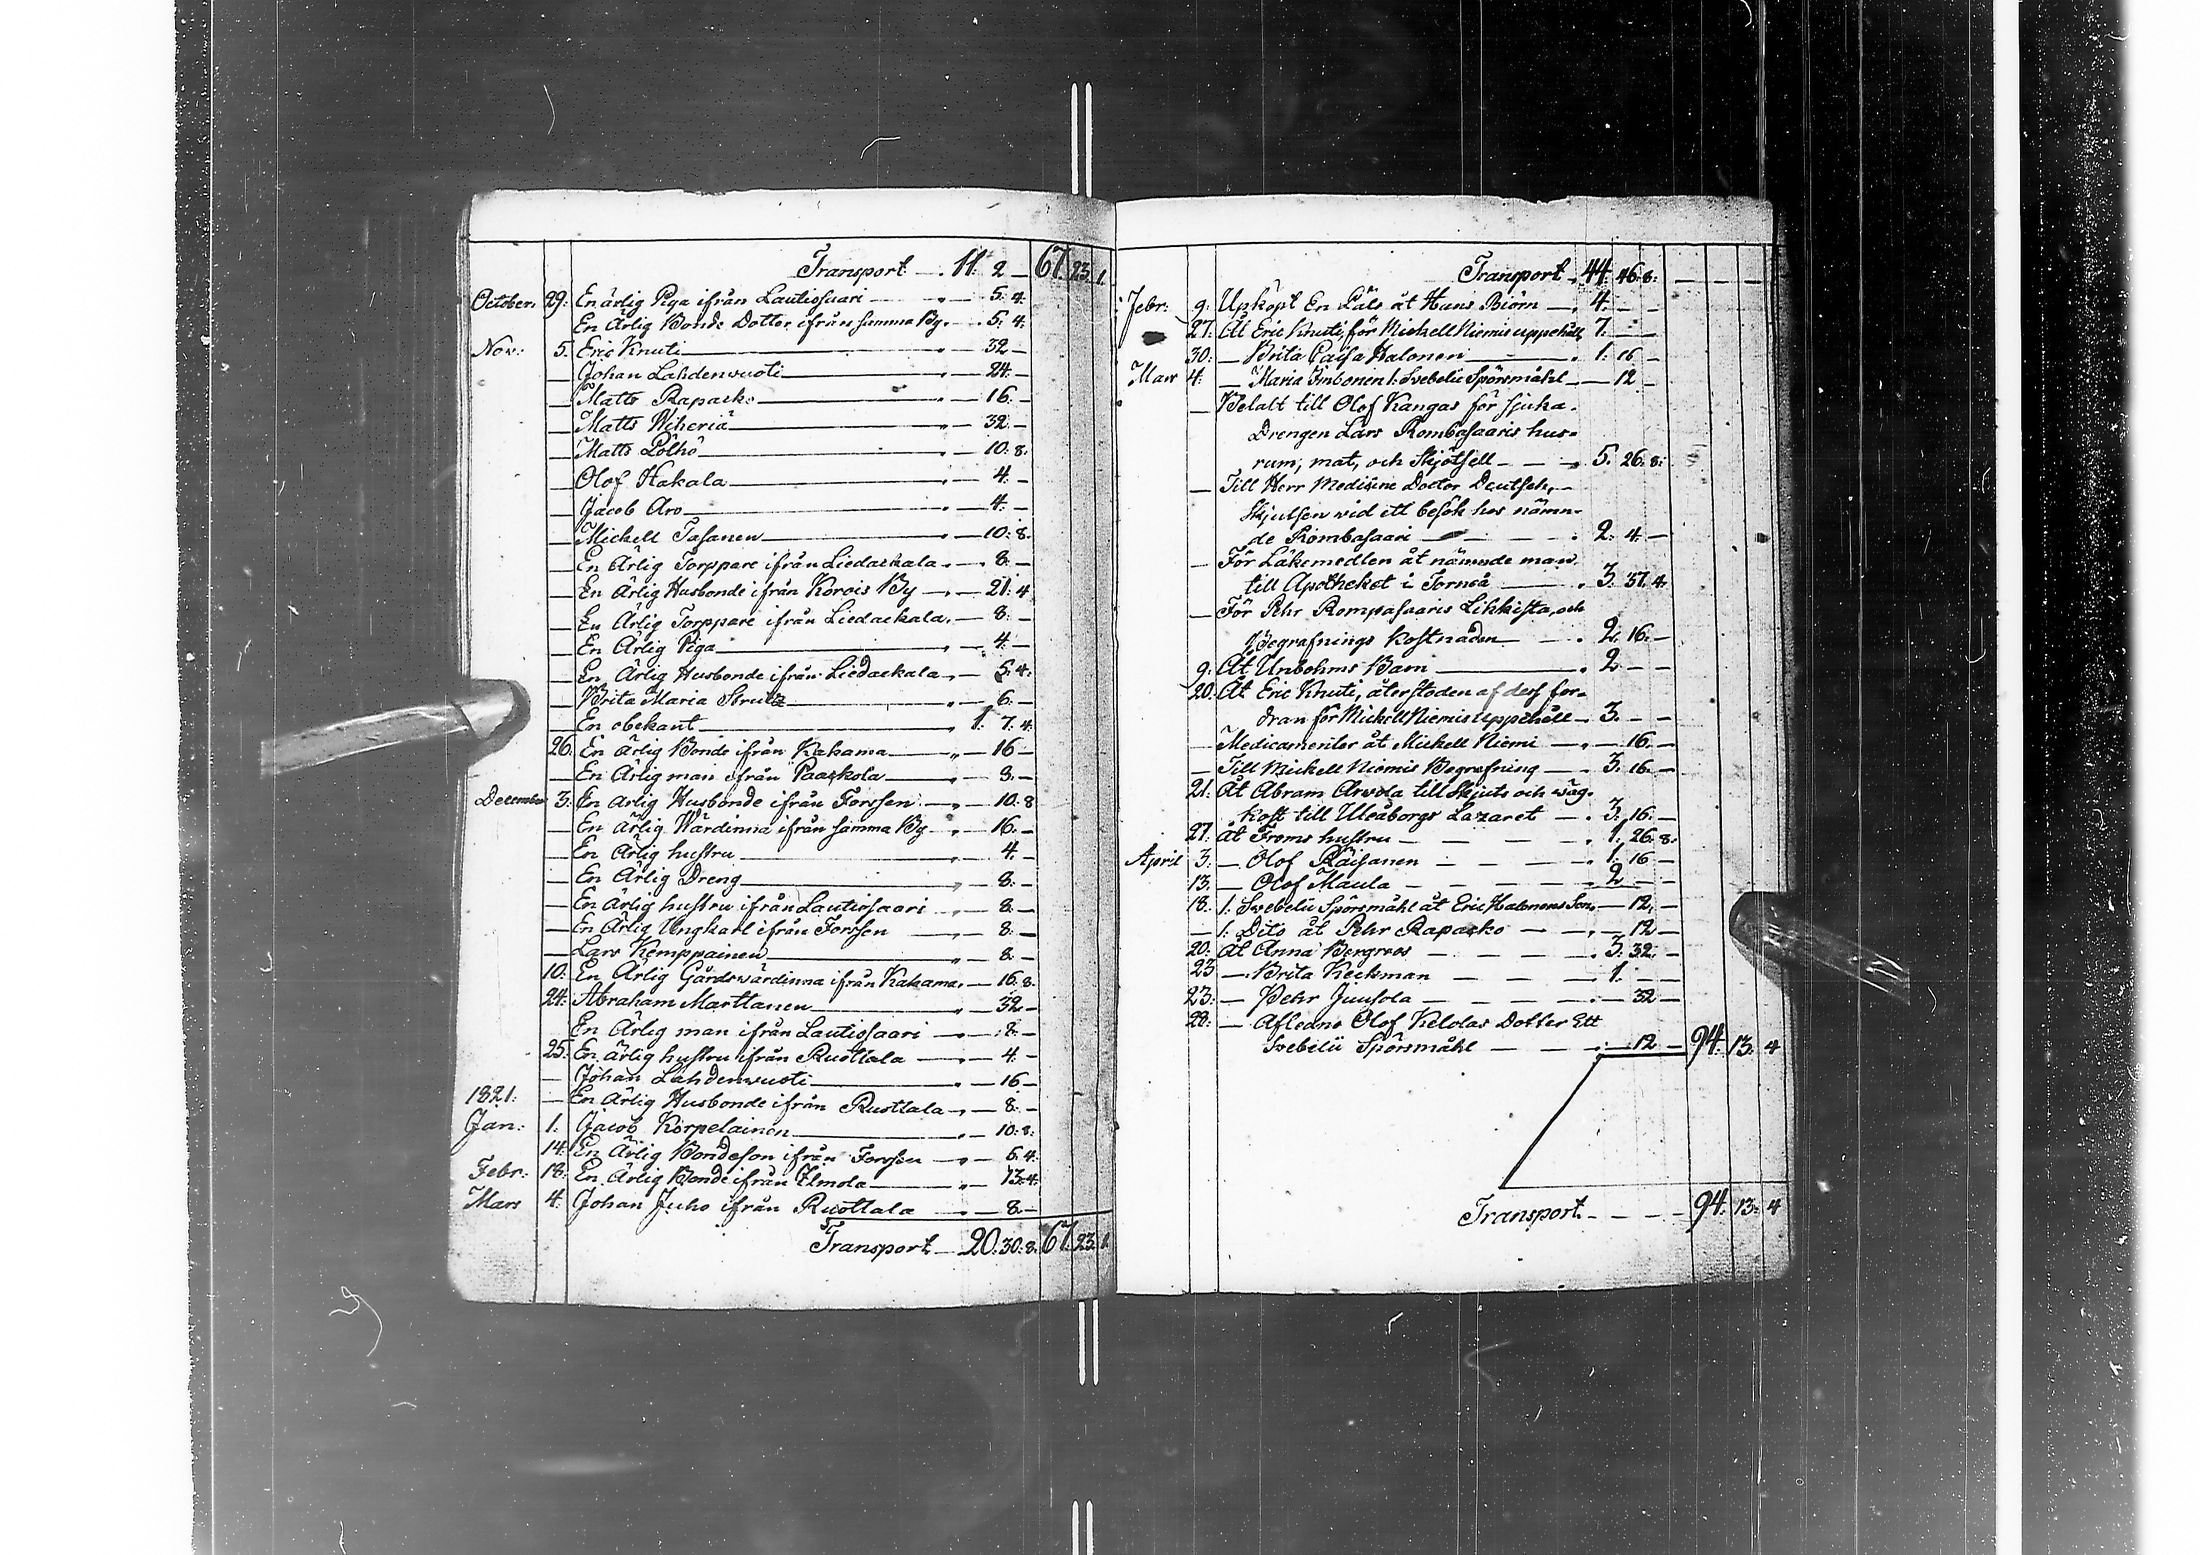 Transport —. 11: 2 — 67. 23. 1.
October: 29: En ärlig Piga ifrån Lautiosaari — „ — 5: 4:
En Ärlig Bonde Dotter ifrån samma By. — . 5: 4:
Nov: 5. Eric Knuti — „ — 32 —
— Johan Lahdenvuoti — „ — 24: —
— Matts Rapasko — „ — 16. —
— Matts Wiheriä — „ — 32: —
— Matts Pölhö — „ — 10: 8:
— Olof Hakala — „ — 4: —
— Jacob Aro — „ — 4: —
— Michell Tasanen — „ — 10: 8.
— En Ärlig Torppare ifrån Liedackala. — . 8: —
— En Ärlig Husbonde ifrån Korois By — „ — 21: 4
— En Ärlig Torppare ifrån Liedackala. — 8: —
— En Ärlig Piga — „ — 4: —
— En Ärlig Husbonde ifrån Liedackala „ — 5: 4:
— Brita Maria — „ — 6: —
— En obekant — „ 1. 7. 4:
26. En Ärlig Bonde ifrån Kakama — „ — 16 —
— En Ärlig man ifrån Paaskola — „ — 8. —
December 3: En ärlig Husbonde ifrån Forssen — „ — 10. 8
— En ärlig Wärdinna ifrån samma By — „ — 16. —
— En Ärlig hustru — „ — 4. —
— En Ärlig Dreng — „ — 8: —
— En ärlig hustru ifrån Lautiosaari — „ — 8: —
— En Ärlig Ungkarl ifrån Forssen — „ — 8: —
— Lars Kemppainen — „ — 8: —
10: En Ärlig Gårdswärdinna ifrån Kakama. — 16. 8.
24: Abraham Marttanen — „ — 32 —
En Ärlig man ifrån Lautiosaari — „ — 8. —
25: En ärlig hustru ifrån Ruottala — „ — 4 —
— Johan Lahdenvuoti — „ — 16 —
1821: — En ärlig Husbonde ifrån Ruottala — „ — 8: —
Jan: 1: Jacob Korpelainen — „ — 10: 8:
14: En Ärlig Bondeson ifrån Forssen — „ — 5. 4:
Febr: 18: En Ärlig Bonde ifrån Ilmola — „ — 13: 4:
Mars 4: Johan Juho ifrån Ruottala — „ — 8: —
Transport — 20. 30: 8. 67. 23. 1.
Transport „ 44: 46. 8: — — —
Febr: 9: Upköpt En Päls åt Hans Biörn — . 4: — —
27. Åt Eric Knuti, för Mickell Niemis uppehåll, 7. — —
30: — Brita Paisa Halonen — . 1: 16 —
Mars 4: — Maria 1: Svebelii Spörsmåhl — — 12 —
— Betalt till Olof Kangas för sjuka
Drengen Lars Rombasaaris hus-
rum, mat, och Skjötsell — — „ 5. 26. 8:
— Till Herr Medicine Doctor Deutsch, —
Skjutsen wid ett besök hos nämn-
de Rombasaari — . 2: 4: —
— För Läkemedlen åt nämnde man
till Apotheket i Torneå — . 3. 37. 4.
— För Pehr Rompasaaris Likkista, och
Begrafnings kostnaden — . 2. 16. —
9: Åt Unbohms Barn — . 2 — —
20: Åt Eric Knuti, återstoden af dess for-
dran för Mickell Niemis uppehåll — 3. — —
— Medicamenter åt Mickell Niemi — „ — 16. —
— Till Mickell Niemis Begrafning — . 3. 16. —
21: Åt Abram Arvola till Skjuts och wäg-
kost till Uleåborgs Lazaret — . 3: 16. —
27: Åt Froms hustru — — — . 1: 26. 8.
April 3: — Olof Räisänen — — — . 1. 16 —
13. — Olof Maula — — — . 2 — —
18: 1: Svebelii Spörsmåhl åt Eric Halonens Son. — 12. —
— 1: Dito åt Pehr Rapasko — „ — 12 —
20: Åt Anna Bergroos — — — . 3: 32. —
23 — Brita Keckman — — — . 1: — —
23: — Pehr Juusola — — — . — 32 —
28: — Afledne Olof Kelolas Dotter Ett
Svebelii Spörsmåhl — — . — 12 — 94. 13: 4
Transport — — — 94: 13: 4